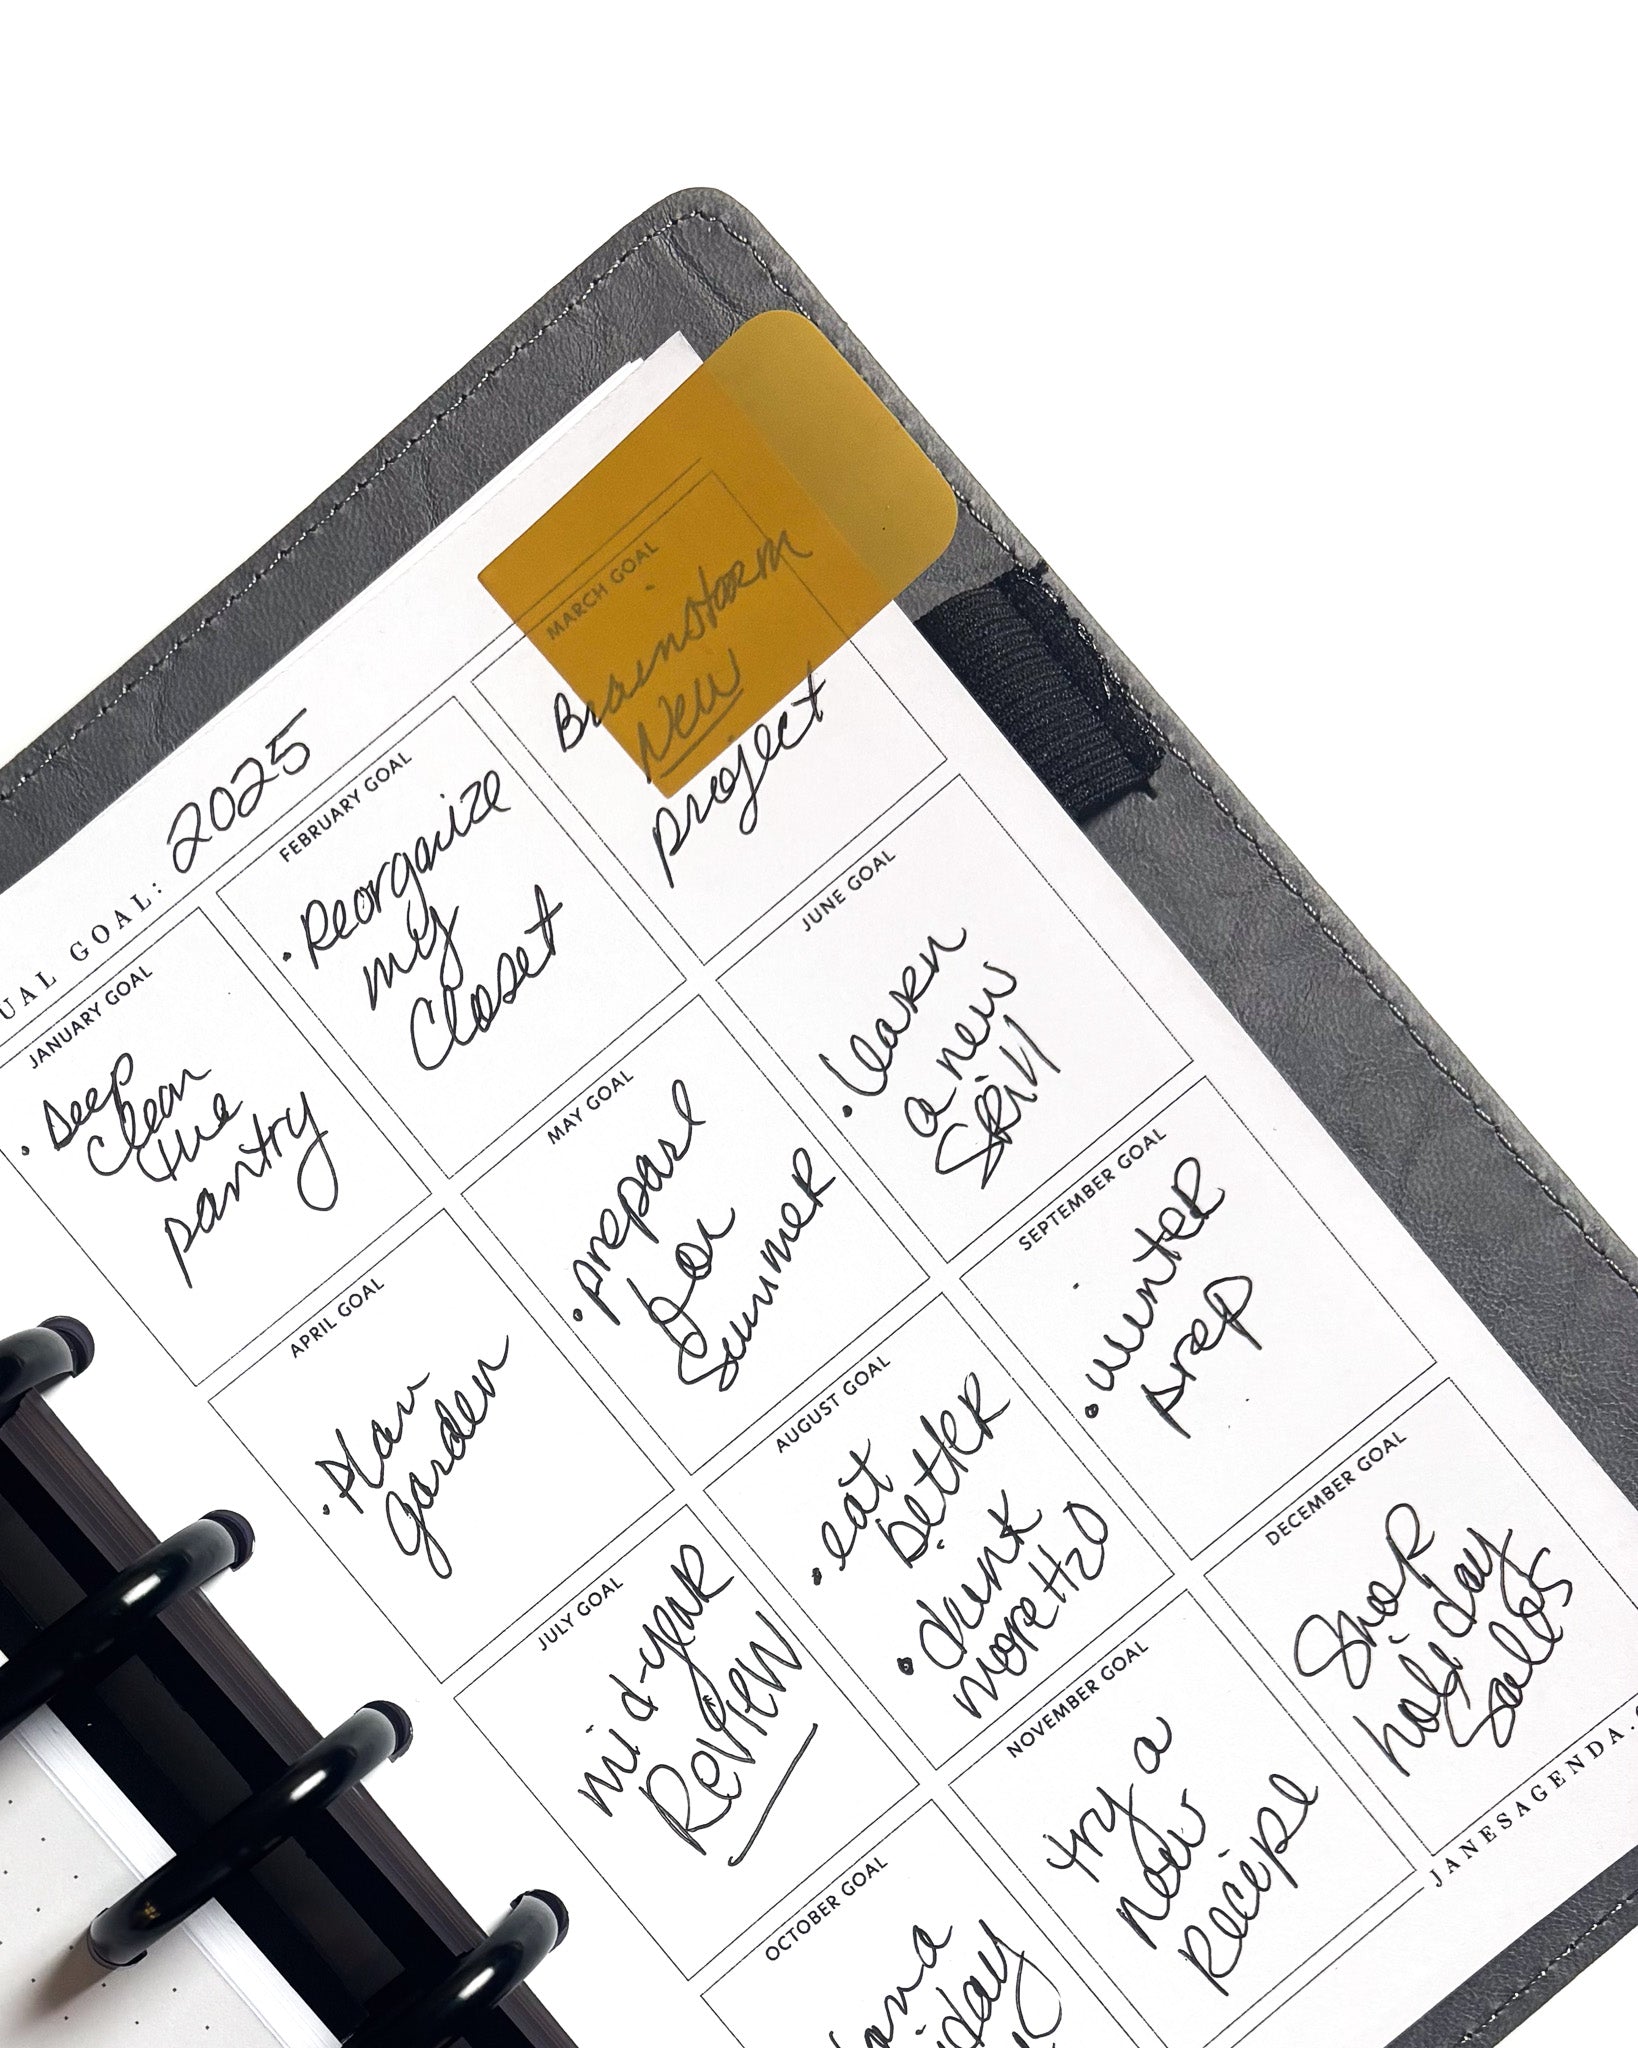 UAL GOAL: 2025
JANUARY GOAL
• Deep
clean
the
pantry
FEBRUARY GOAL
• Reorganize
my
closet
MARCH GOAL
• Brainstorm
New
project
APRIL GOAL
• Plan
garden
MAY GOAL
• prepare
for
Summer
JUNE GOAL
• learn
a new
skill
JULY GOAL
mid-year
Review
AUGUST GOAL
• eat
better
• drink
more H2O
SEPTEMBER GOAL
• winter
prep
OCTOBER GOAL
NOVEMBER GOAL
try a
new
Recipe
DECEMBER GOAL
Shop
holiday
sales
JANESAGENDA.